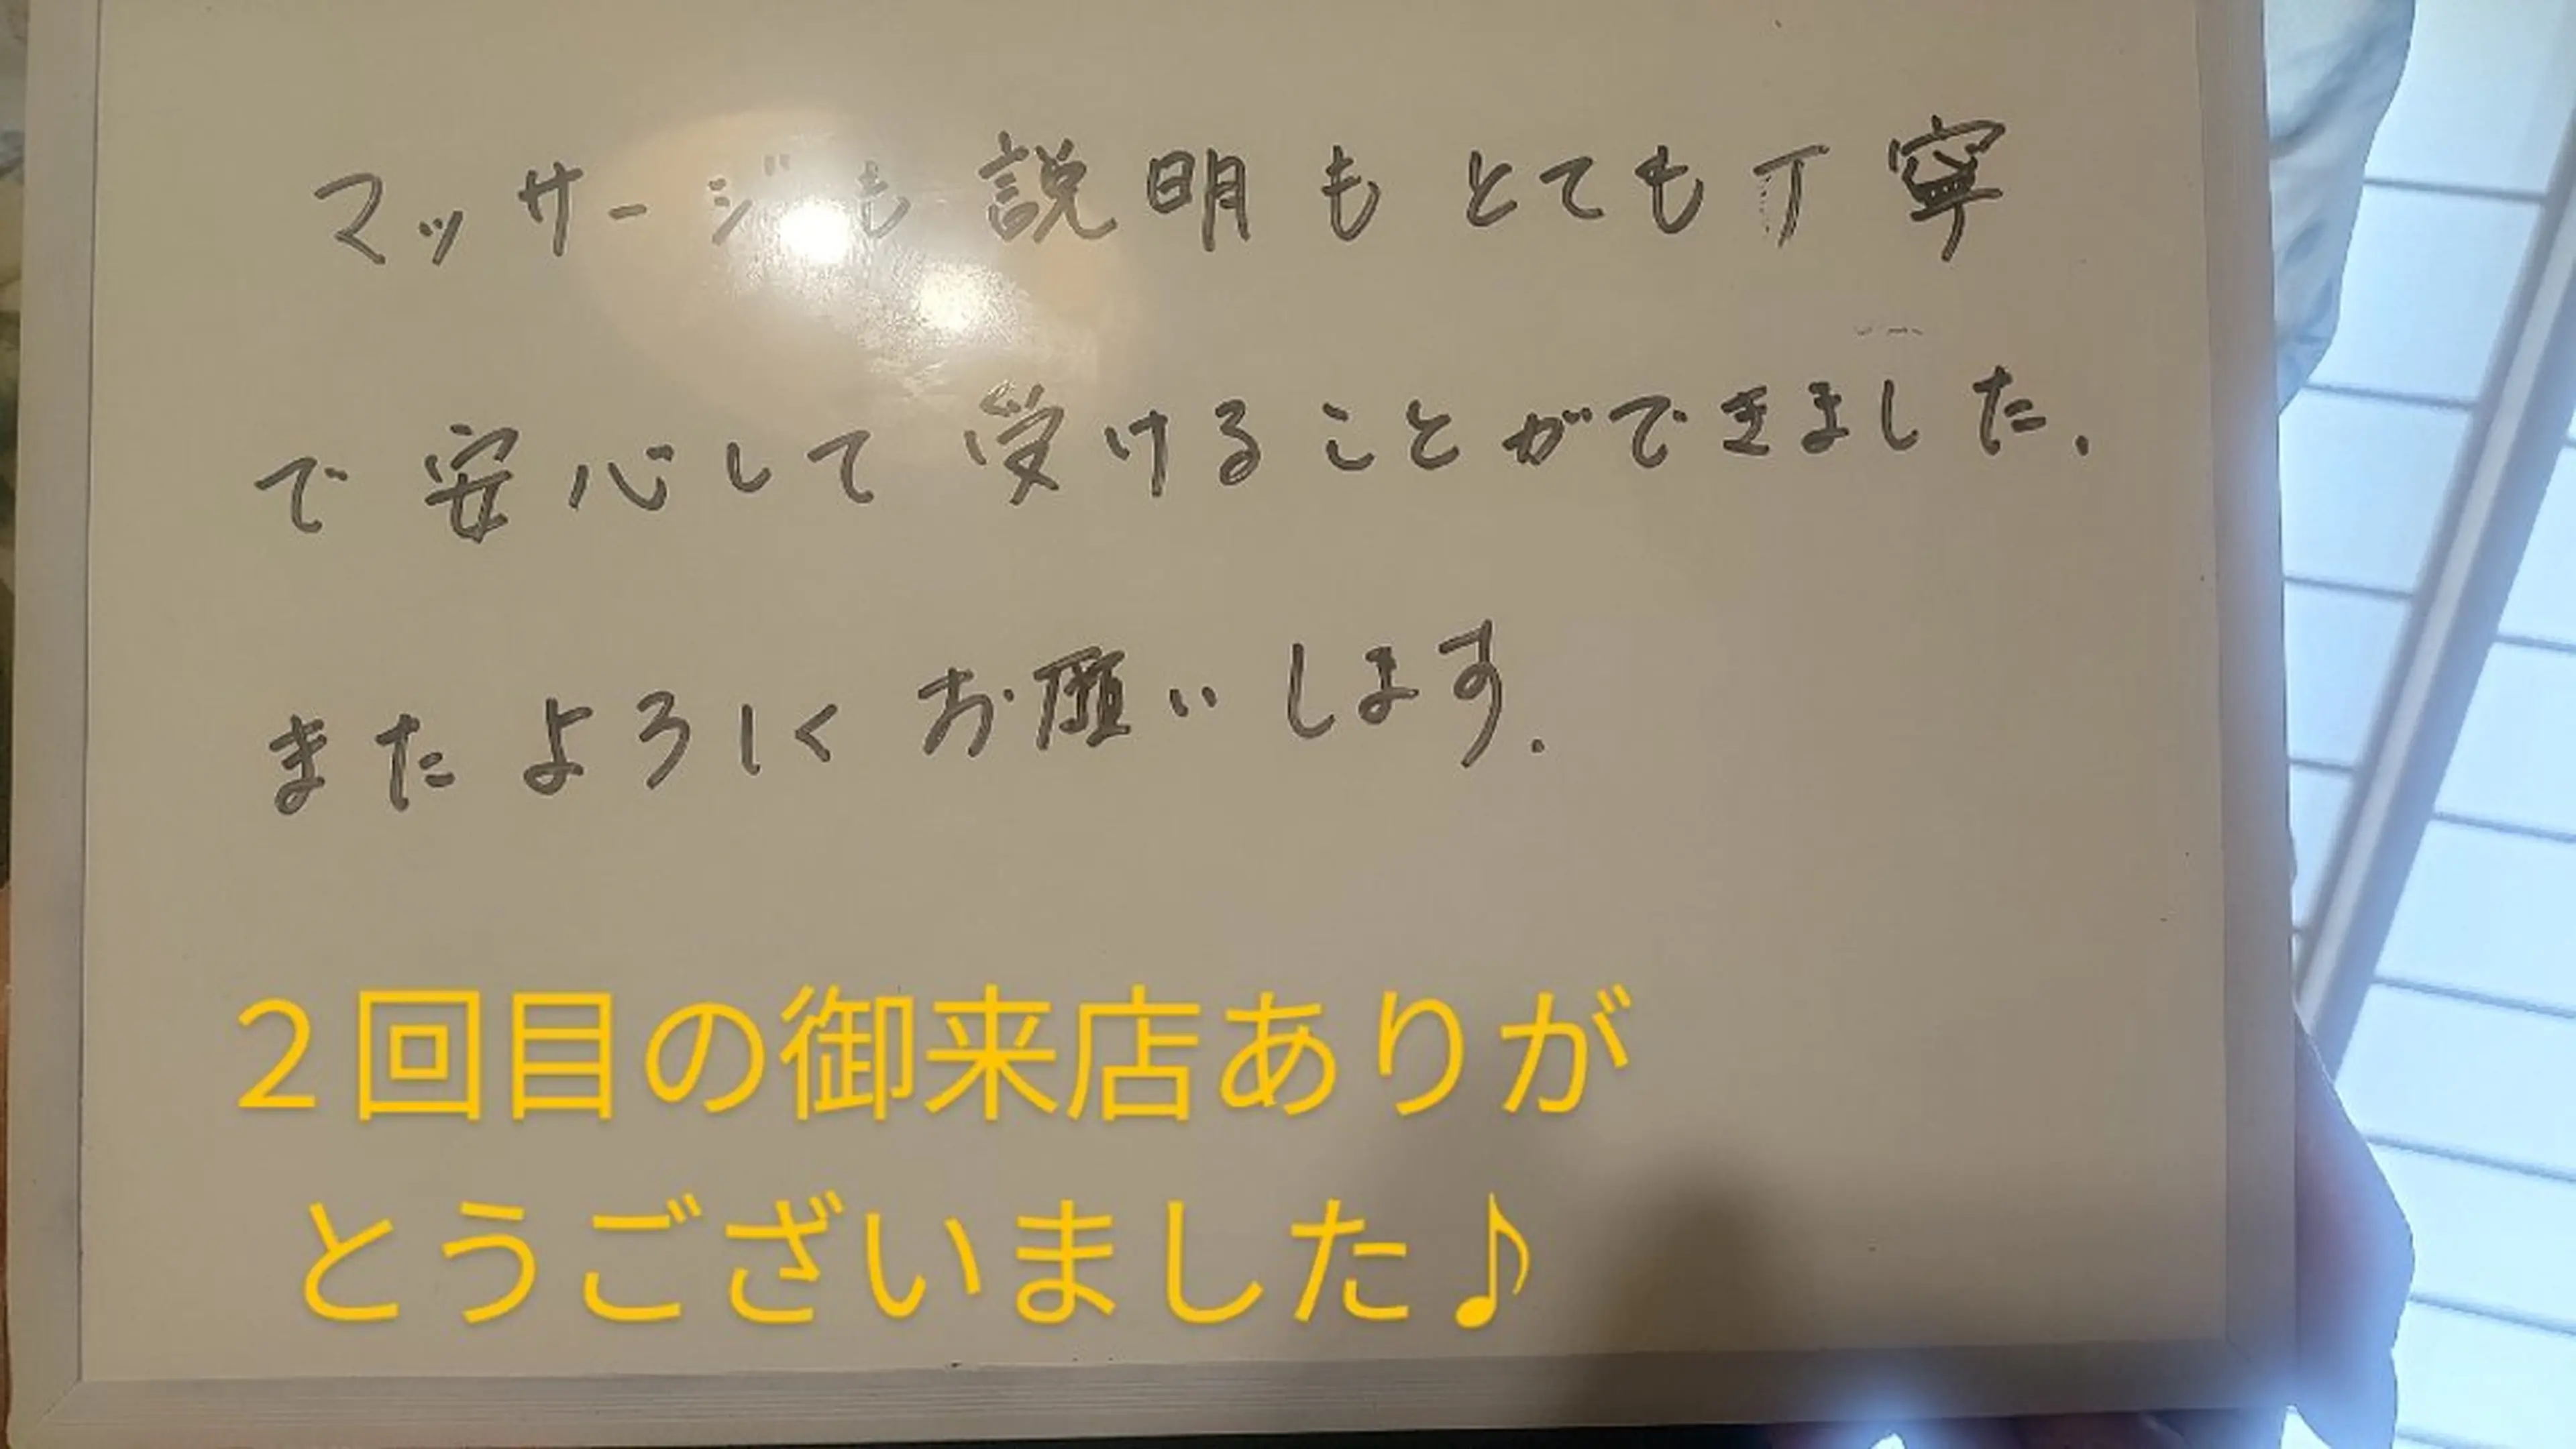 マッサージも説明もとても丁寧
で安心して受けることができました.
またよろしくお願いします.
２回目の御来店ありが
とうございました♪